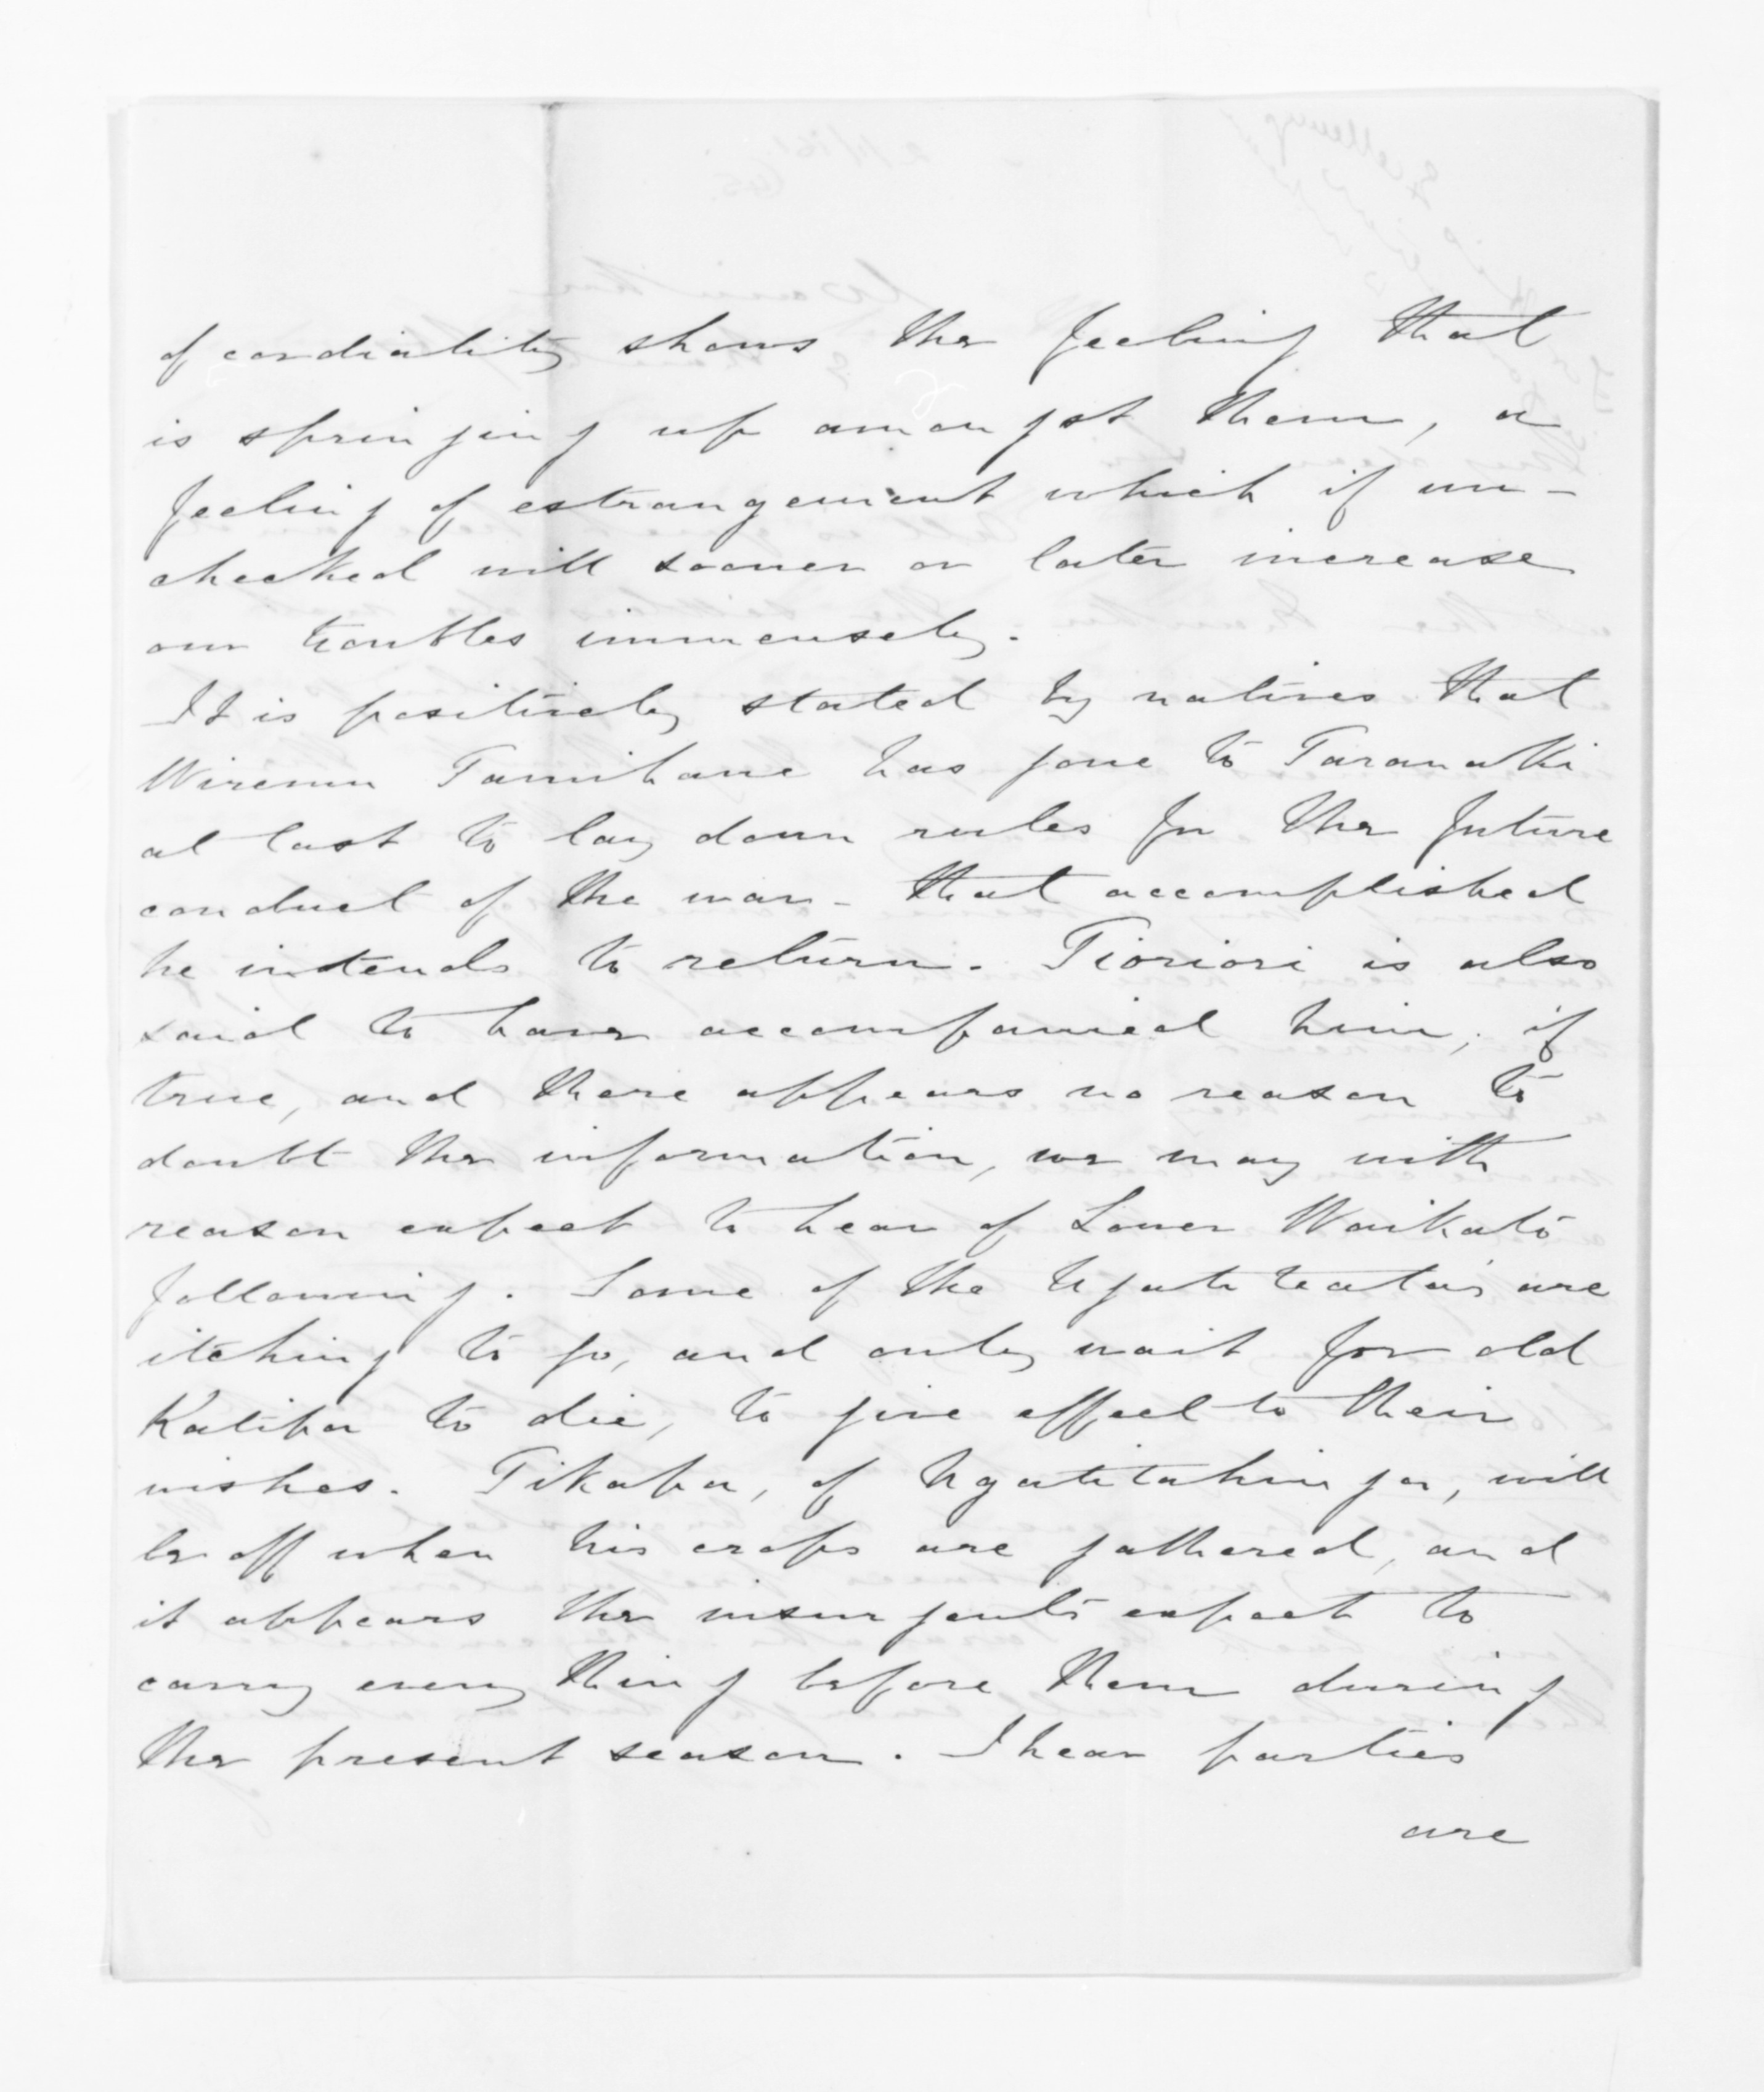 of cordiality shows the feeling that
is springing up amongst them, a
feeling of estrangement which if un-
checked will sooner or later increase
our troubles immensely.
It is positively stated by natives that
Wiremu Tamihana has gone to Taranaki
at last to lay down rules for the future
conduct of the war - that accomplished
he intends to return. Tioriori is also
said to have accompanied him; if
true, and there appears no reason to
doubt the information, we may with
reason expect to hear of Lower Waikato
following. Some of the Ngatiteata's are
itching to go, and only wait for old
Katipa to die, to give effect to their
wishes. Tikapa, of Ngatitahinga, will
be off when his crops are gathered, and
it appears the insurgents expect to
carry every thing before them during
the present season. I hear parties
are